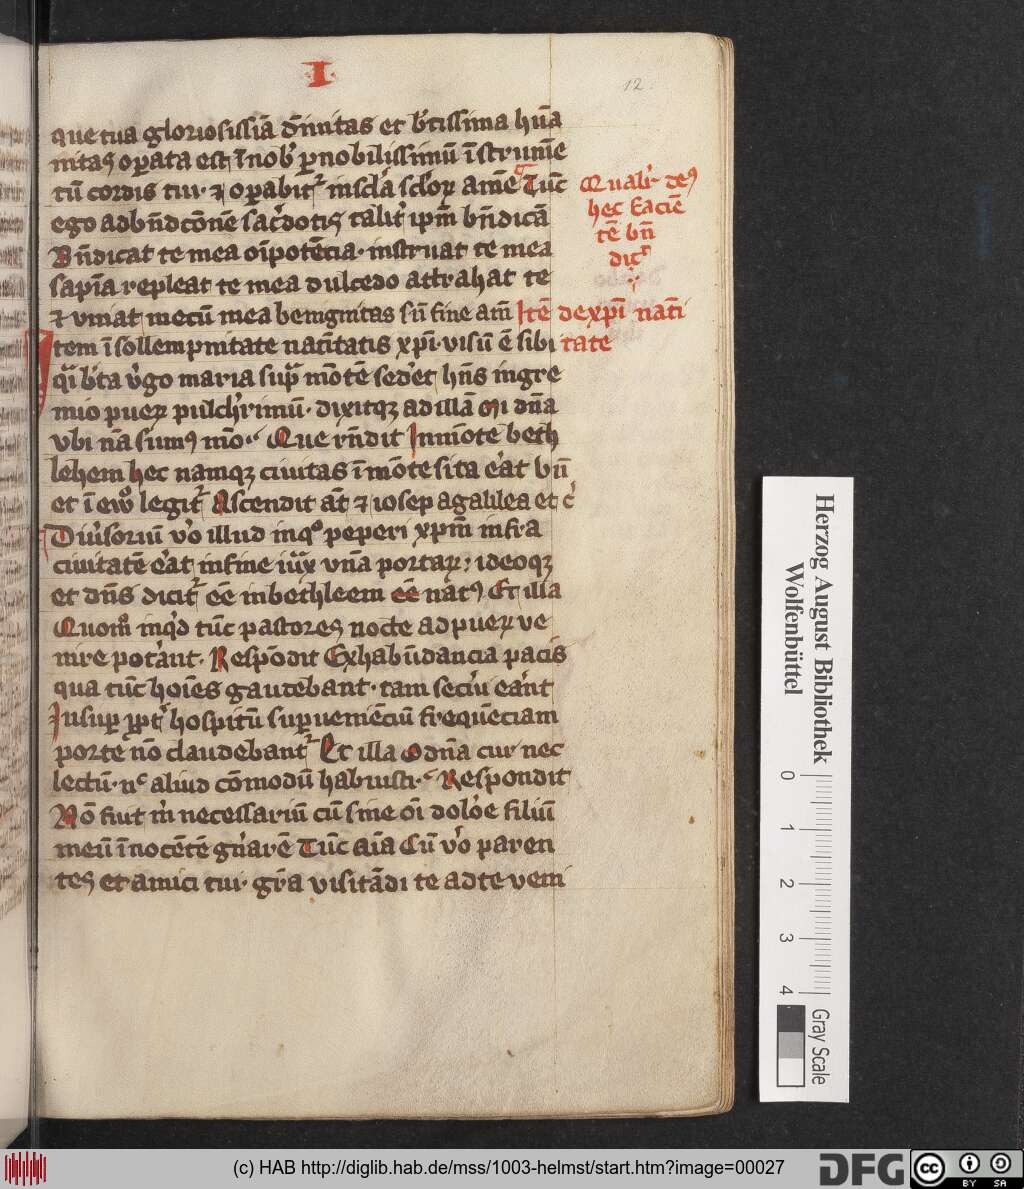 ·I·
12
que tua gloriosissiā diuinitas et btissima huā
nitas opata est ī nob pnobilissimū īstrumē
tū cordis tui · ⁊ opabit in scla sclor amē Tūc
ego ad bn̄dcōnē sacdotis talit ipm̄ bn̄dicā
Bn̄dicat te mea oīpotēcia · instruat te mea
sapīa repleat te mea dulcedo attrahat te
⁊ vniat mecū mea benignitas sn̄ fine am̄ Itē de xpī nati
tem ī sollempnitate natiītatis xpī · visū ē sibi tate
bta vgo maria sup mōtē sedet hn̄s in gre
mio puer pulchrimū · dixitqꝫ ad illā mi dn̄a
vbi nā sumꝰ mō · Que rn̄dit In mōte beth
lehem hec namqꝫ ciuitas ī mōte sita erat
et ī ewͦ legit Ascendit at̄ ⁊ iosep a galilea et c
Diuisoriū vo illud in qͦ peperi xpm̄ infra
ciuitatē erat in fine iux vnā portar ; ideoqꝫ
et dn̄s dicit eē in bethleem eē natꝰ Et illa
Quomͦ inqd tūc pastores nocte ad puer ve
nire potant · Respōdit Ex habūdancia pacis
qua tūc hoīes gaudebant · tam secu eant
Insup ppt hospitū supueniēciū frequēciam
porte nō claudebant Et illa O dn̄a cur nec
lectū · nͨ aliud cōmodū habuisti · Respondit
Nō fuit m necessariū cū sine oī dolore filiū
meū īnocētē gnarē Tūc aīa Cū vo paren
tes et amici tui · gra visitādi te ad te veni
Qualit deꝰ
hec Faciē
tē bn̄
dic
Herzog August Bibliothek
Wolfenbüttel
0 1 2 3 4
Gray Scale
(c) HAB http://diglib.hab.de/mss/1003-helmst/start.htm?image=00027
DFG
cc
BY SA